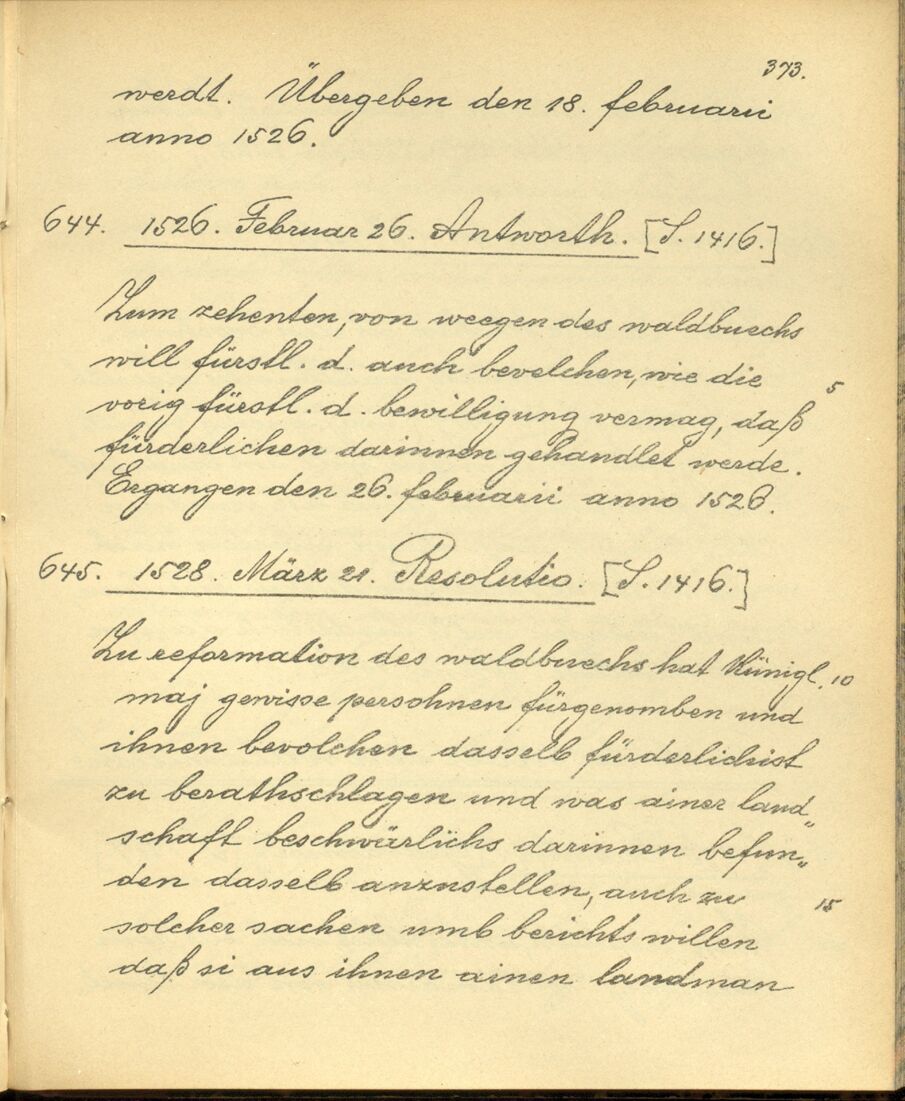 373.
werdt. Übergeben den 18. februarii
anno 1526.
644. 1526. Februar 26. Antworth. [S. 1416.]
Zum zehenten, von weegen des waldbuechs
will fürstl. d. auch bevelchen, wie die
5
vorig fürstl. d. bewilligung vermag, daß
fürderlichen darinnen gehandlet werde.
Ergangen den 26. februarii anno 1526.
645. 1528. März 21. Resolutio. [S. 1416.]
Zu reformation des waldbuechs hat Künigl. 10
maj gewisse persohnen fürgenomben und
ihnen bevolchen dasselb fürderlichist
zu berathschlagen und was ainer land„
schaft beschwärlichs darinnen befun„
den dasselb anzustellen, auch zu 15
solcher sachen umb berichts willen
daß si aus ihnen ainen landman